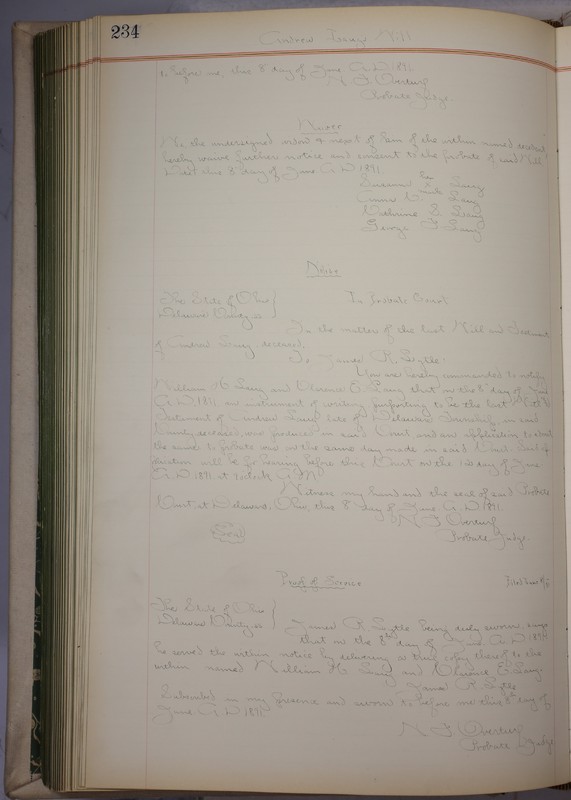 234
Andrew Leary Will
to before me, this 8 day of June A.D. 1891.
N. F. Overturf
Probate Judge.
Waiver
We the undersigned widow & next of kin of the within named
hereby waive further notice and consent to the probate of said Will
this 8 day of June A.D. 1891
George F.
Notice
The State of Ohio
Delaware County ss
In Probate Court
In the matter of the last Will and Testament
of Andrew deceased.
To James R. Lytle.
You are hereby commanded to notify
William H. and Clarence E. that on the 8 day of June
A.D. 1891 an instrument of writing purporting to be the last Will &
Testament of Andrew late of Delaware Township in said
County deceased, was produced in said Court and an application to admit
the same to probate was on the same day made in said Court. Said
application will be for hearing before this Court on the day of June
A.D. 1891 at o'clock
Witness my hand and the seal of said Probate
Court at Delaware, Ohio, this 8 day of June A.D. 1891.
Seal
N. F. Overturf
Probate Judge.
Proof of Service
Filed June
The State of Ohio
Delaware County ss
James R. Lytle being duly sworn, says
that on the 8th day of June A.D. 1891
he served the within notice by delivering a true copy thereof to the
within named William H. and Clarence E.
James R. Lytle
Subscribed in my presence and sworn to before me this 8th day of
June A.D. 1891
N. F. Overturf
Probate Judge